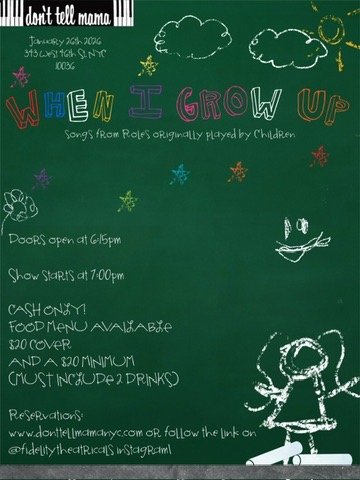 don't tell mama
January 26th 2026
343 West 46th St. NYC
10036
WHEN I GROW UP
Songs from Roles originally played by Children
Doors open at 6:15pm
Show starts at 7:00pm
CASH ONLY!
FOOD MENU AVAILABLE
$20 COVER
AND A $20 MINIMUM
(MUST INCLUDE 2 DRINKS)
Reservations:
www.donttellmamanyc.com or follow the link on
@fidelitytheatricals instagram!